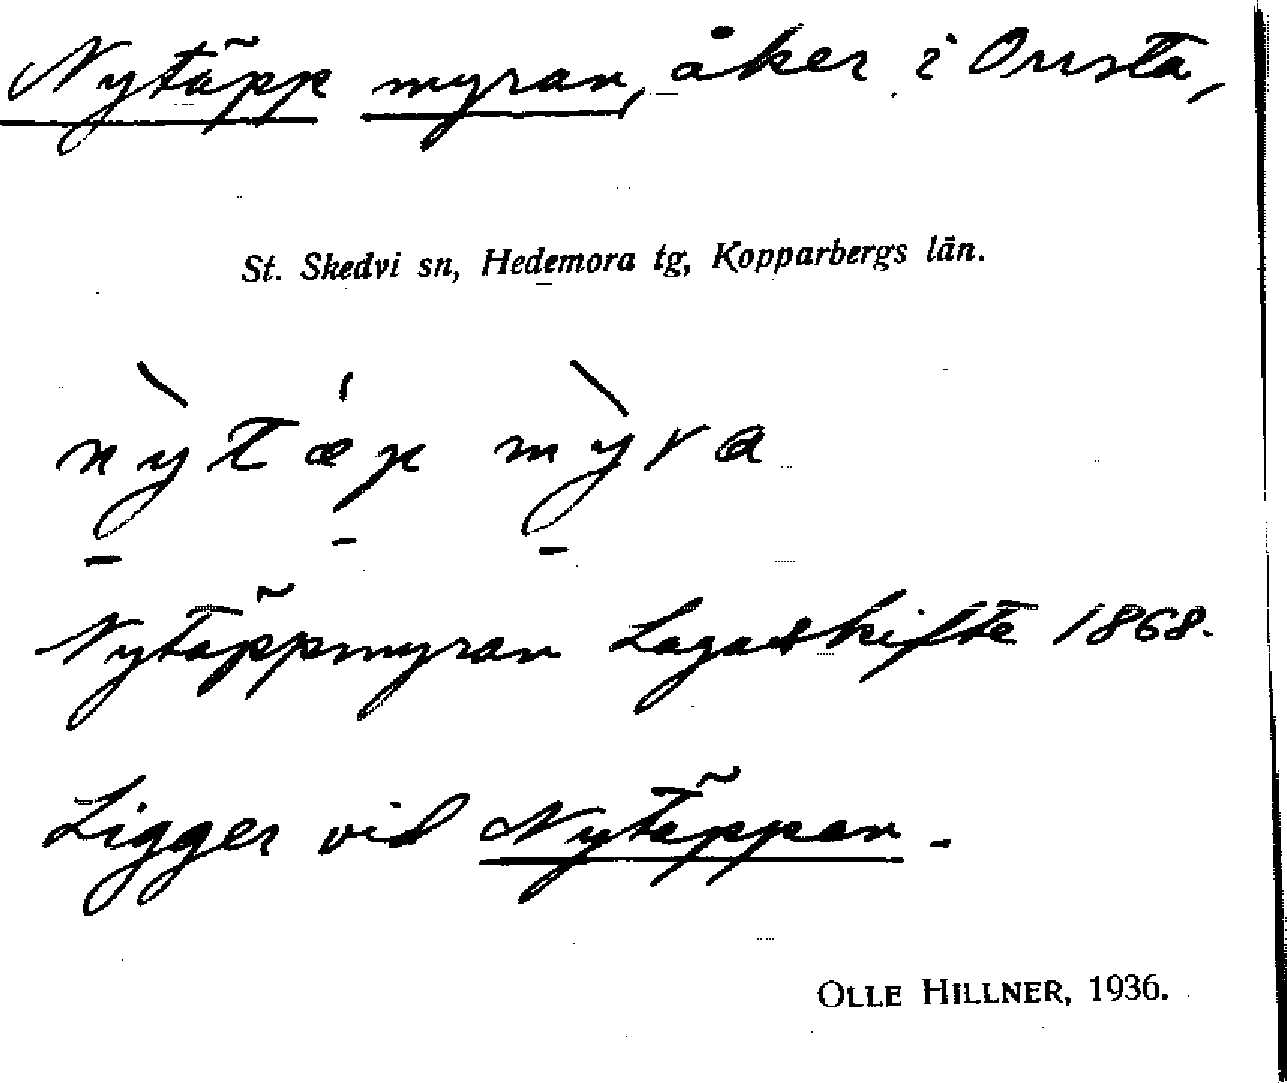 Nytäpp myran, åker i Onsta,
St. Skedvi sn, Hedemora tg, Kopparbergs län.
nỳtæ̀p mỳra
Nytäppmyran Lagaskifte 1868.
Ligger vid Nytäppan.
OLLE HILLNER, 1936.